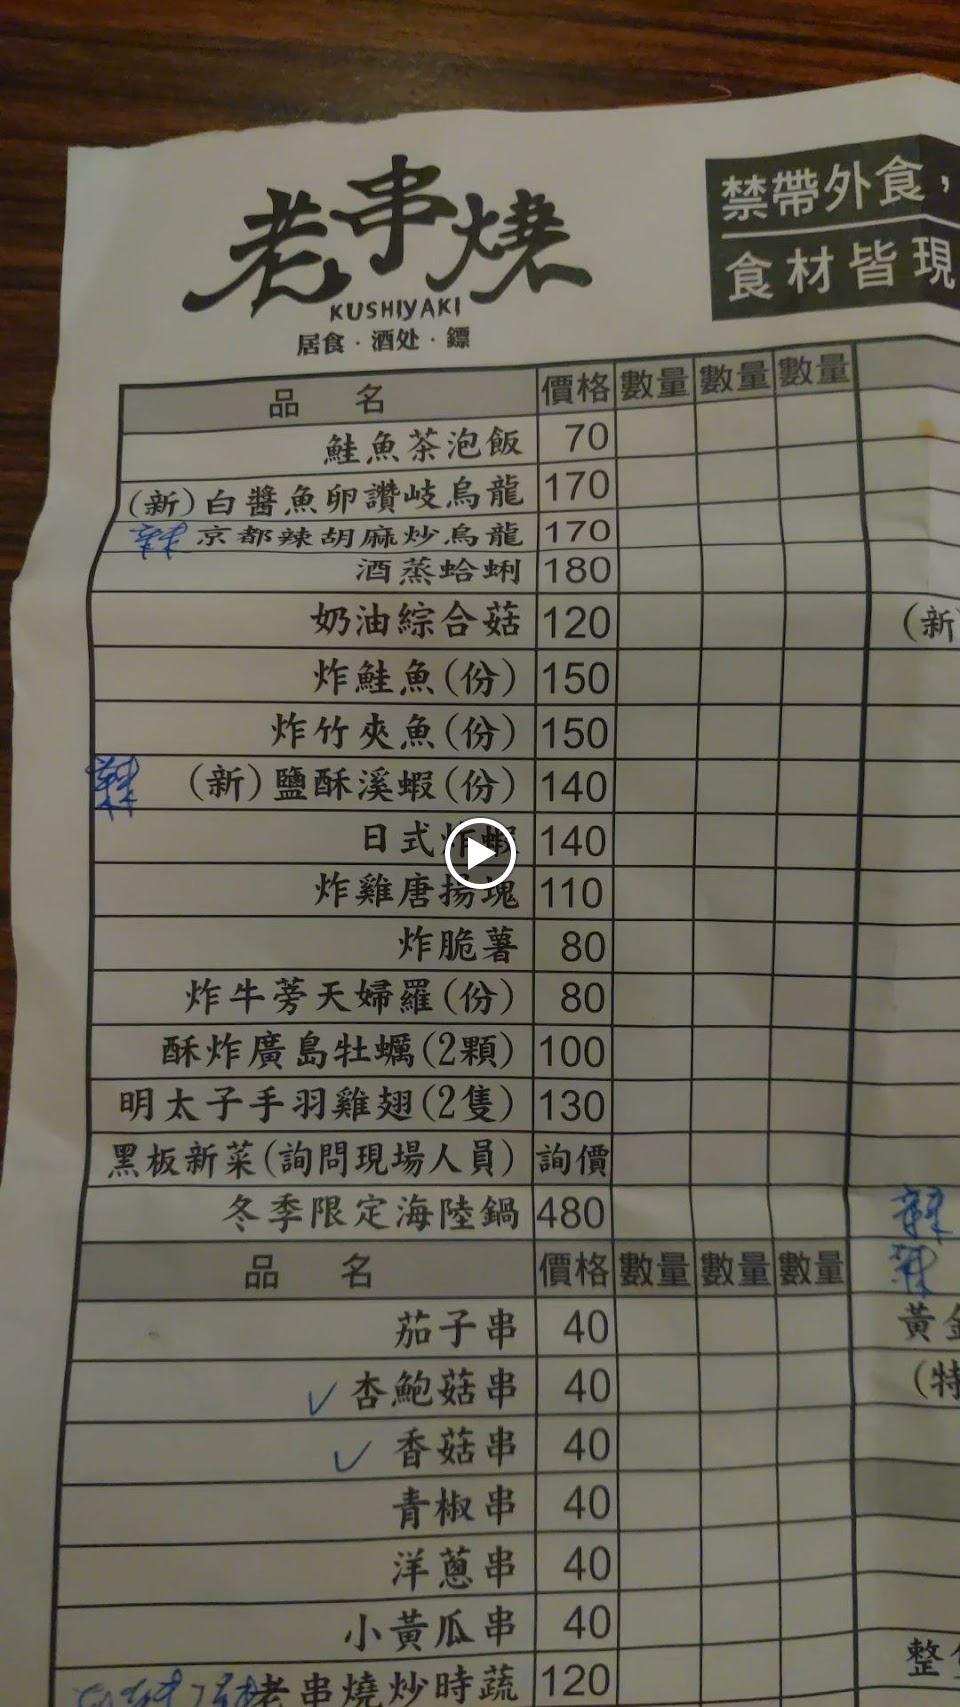 老串燒
KUSHIYAKI
居食·酒处·鏢
禁帶外食，
食材皆現
品名 價格 數量 數量 數量
鮭魚茶泡飯 70
(新)白醬魚卵讚岐烏龍 170
辣 京都辣胡麻炒烏龍 170
酒蒸蛤蜊 180
奶油綜合菇 120
(新)
炸鮭魚(份) 150
炸竹夾魚(份) 150
辣 (新)鹽酥溪蝦(份) 140
日式炸蝦 140
炸雞唐揚塊 110
炸脆薯 80
炸牛蒡天婦羅(份) 80
酥炸廣島牡蠣(2顆) 100
明太子手羽雞翅(2隻) 130
黑板新菜(詢問現場人員) 詢價
冬季限定海陸鍋 480
辣
品名 價格 數量 數量 數量
辣
茄子串 40
黃金
✓ 杏鮑菇串 40
(特
✓ 香菇串 40
青椒串 40
洋蔥串 40
小黃瓜串 40
整
老串燒炒時蔬 120